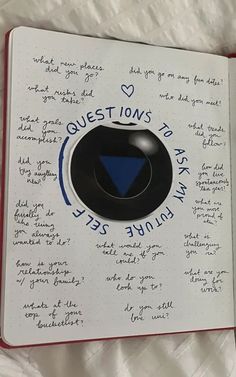 QUESTIONS TO ASK MY FUTURE SELF
what new places
did you go?
what risks did
you take?
what goals
did you
accomplish?
did you
buy anything
new?
did you
finally do
the thing
you always
wanted to do?
how is your
relationship
w/ your family?
whats at the
top of your
bucketlist?
did you go on any fun dates?
who did you meet?
what trends
did you
follow?
how did
you live
spontaneously
what are
you most
proud of
what is
challenging
you rn?
what are you
doing for
work?
what would you
tell me if you
could?
who do you
look up to?
do you still
love uni?